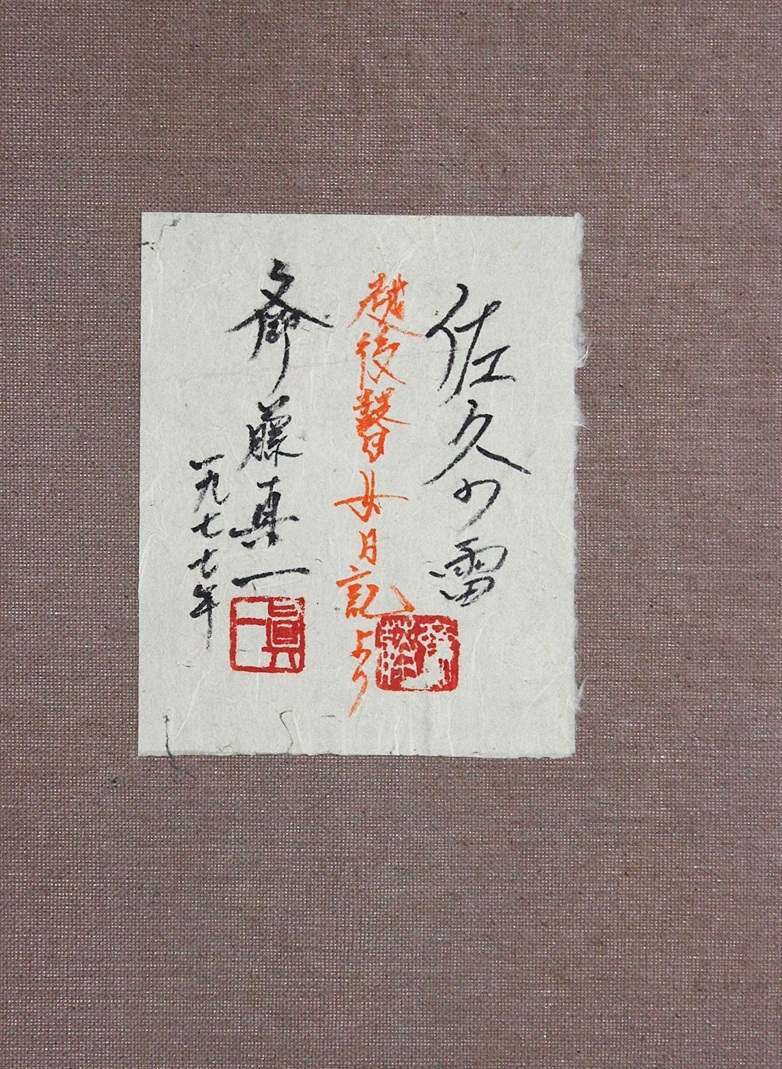 佐久の雷
越後瞽女日記より
斎藤真一
一九七七年
眞一